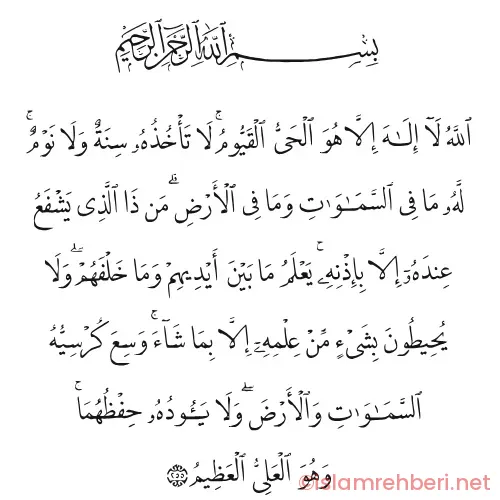 بِسْمِ ٱللَّهِ ٱلرَّحْمَٰنِ ٱلرَّحِيمِ
ٱللَّهُ لَآ إِلَٰهَ إِلَّا هُوَ ٱلْحَىُّ ٱلْقَيُّومُ ۚ لَا تَأْخُذُهُۥ سِنَةٌ وَلَا نَوْمٌ ۚ
لَّهُۥ مَا فِى ٱلسَّمَٰوَٰتِ وَمَا فِى ٱلْأَرْضِ ۗ مَن ذَا ٱلَّذِى يَشْفَعُ
عِندَهُۥٓ إِلَّا بِإِذْنِهِۦ ۚ يَعْلَمُ مَا بَيْنَ أَيْدِيهِمْ وَمَا خَلْفَهُمْ ۖ وَلَا
يُحِيطُونَ بِشَىْءٍ مِّنْ عِلْمِهِۦٓ إِلَّا بِمَا شَآءَ ۚ وَسِعَ كُرْسِيُّهُ
ٱلسَّمَٰوَٰتِ وَٱلْأَرْضَ ۖ وَلَا يَـُٔودُهُۥ حِفْظُهُمَا ۚ
وَهُوَ ٱلْعَلِىُّ ٱلْعَظِيمُ ۝٢٥٥
©islamrehberi.net